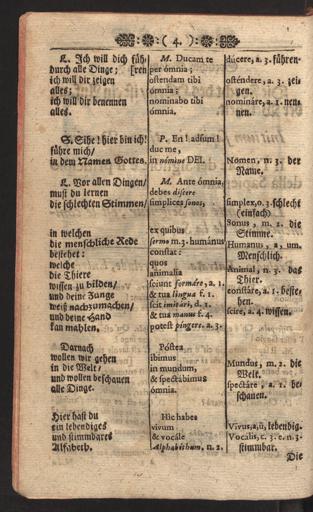 ( 4. )
L. Ich will dich füh-
durch alle Dinge; [ren
ich will dir zeigen
alles;
ich will dir benennen
alles.
S. Sihe! hier bin ich!
führe mich/
in dem Namen Gottes.
L. Vor allen Dingen/
must du lernen
die schlechten Stimmen/
in welchen
die menschliche Rede
bestehet:
welche
die Thiere
wissen zu bilden/
und deine Zunge
weiß nachzumachen/
und deine Hand
kan mahlen.
Darnach
wollen wir gehen
in die Welt/
und wollen beschauen
alle Dinge.
Hier hast du
ein lebendiges
und stimmbares
Alfabeth.
M. Ducam te
per ómnia;
ostendam tibi
ómnia;
nominabo tibi
ómnia.
P. En! adsum!
duc me,
in nómine DEI.
M. Ante ómnia,
debes discere
simplices sonos,
ex quibus
sermo m.3. humanus
constat:
quos
animalia
sciunt formáre, a. 1.
& tua lingua f. 1.
scit imitári, d. 1.
& tua manus f. 4.
potest pingere, a. 3.
Póstea
ibimus
in mundum,
& spectábimus
ómnia.
Hic habes
vivum
& vocále
Alphabéthum, n. 2.
dúcere, a. 3. führen.
osténdere, a. 3. zei-
gen.
nomináre, a. 1. nen-
nen.
Nomen, m. 3. der
Name.
simplex, o. 3. schlecht
(einfach)
Sonus, m. 2. die
Stimme.
Humanus, a, um.
Menschlich.
Animal, n. 3. das
Thier.
constáre, a. 1. beste-
hen.
scire, a. 4. wissen.
Mundus, m. 2. die
Welt.
spectáre, a. 1. be-
schauen.
Vivus, a, ũ, lebendig.
Vocalis, c. 3. e. n. 3.
stimmbar.
Die